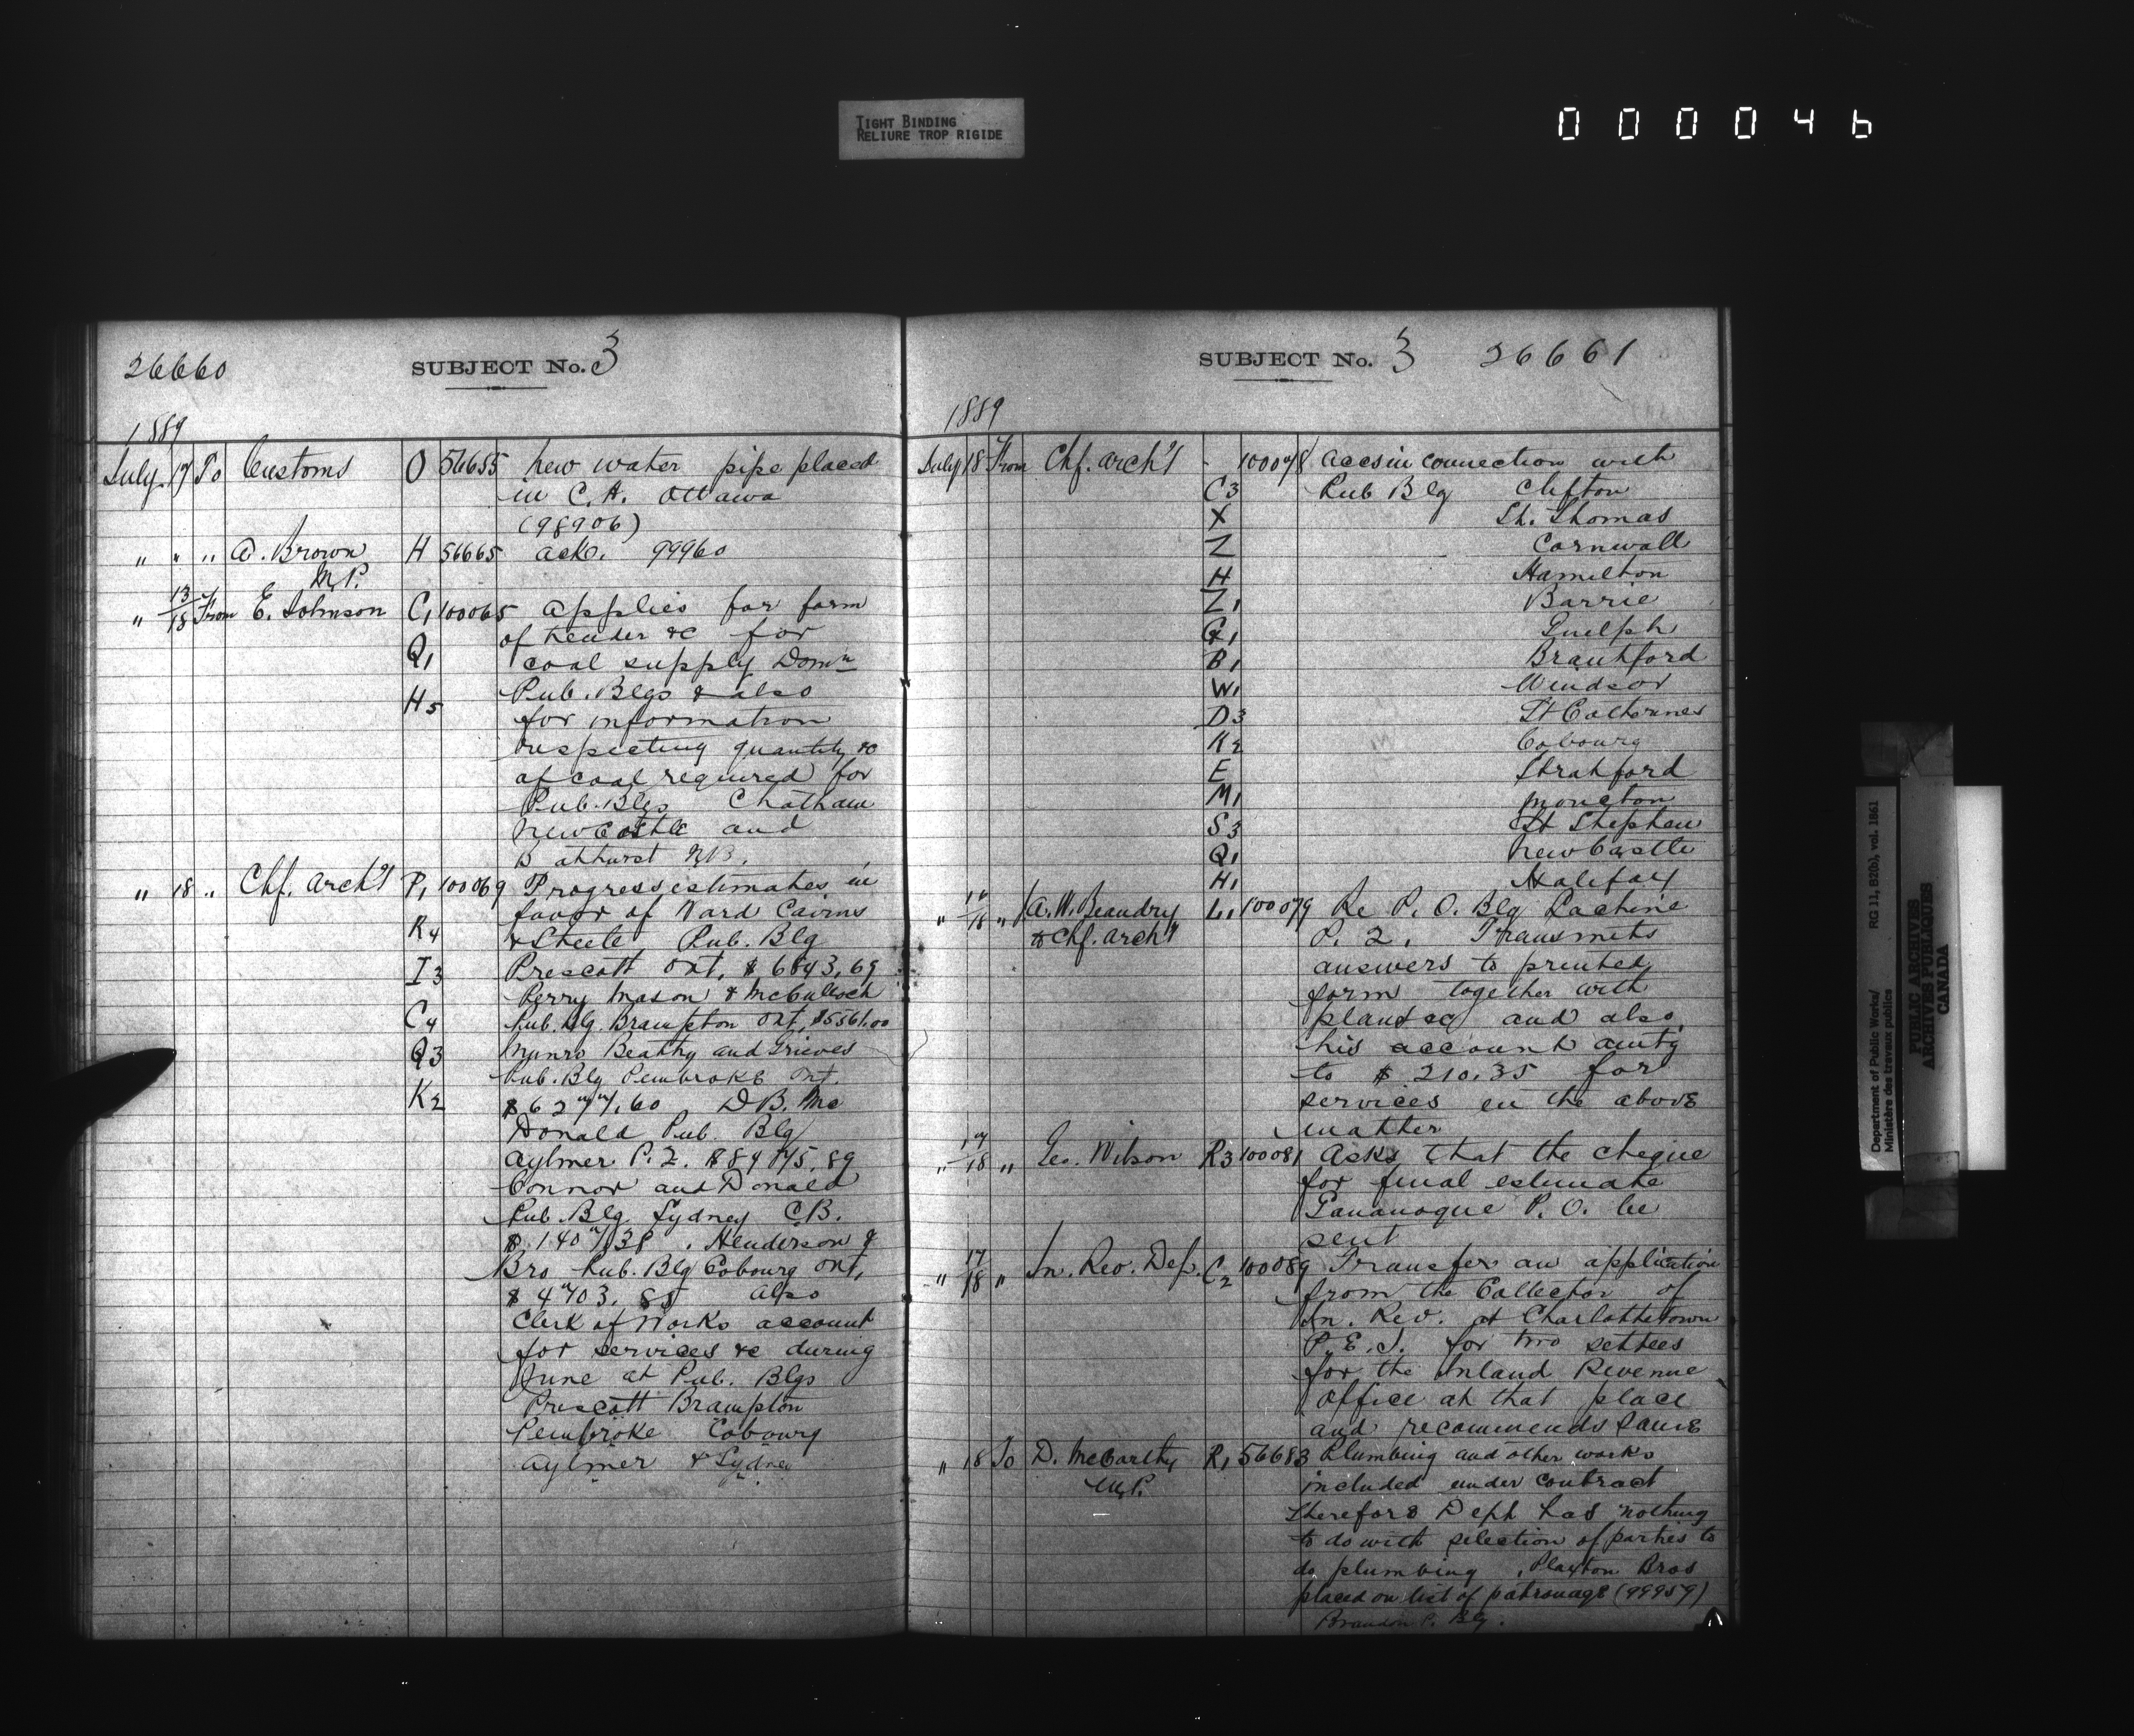 TIGHT BINDING
RELIURE TROP RIGIDE
000046
26660
SUBJECT No. 3
1889
July 17 To Customs O 56655 new water pipe placed
in C.H. Ottawa
(98906)
" " " A. Brown H 56665 ackg. 99960
M.P.
" 13/18 From E. Johnson C1 100065 applies for form
of tender &c for
Q1 coal supply Domn
H5 Pub. Blgs & also
for information
respecting quantity &c
of coal required for
Pub. Blgs Chatham
Newcastle and
Bathurst N.B.
" 18 " Chf. Arch't P1 100069 Progress estimates in
favor of Ward Cairns
K4 & Steele Pub. Blg
I3 Prescott Ont. $6843.69
Perry Mason & McCulloch
C4 Pub. Blg. Brampton Ont. $5561.00
Q3 Munro Beatty and Grieves
Pub. Blg Pembroke Ont.
K2 $6277.60 D.B. Mc
Donald Pub. Blg
Aylmer P.Q. $8475.89
Connor and Donald
Pub. Blg Sydney C.B.
$1407.38. Henderson &
Bro Pub. Blg Cobourg Ont.
$4703.85 also
Clerk of Works account
for services &c during
June at Pub. Blgs
Prescott Brampton
Pembroke Cobourg
Aylmer & Sydney
SUBJECT No. 3 26661
1889
July 18 From Chf. Arch't - 100078 accs in connection with
C3 Pub Blg Clifton
X St. Thomas
Z Cornwall
H Hamilton
Z1 Barrie
G1 Guelph
B1 Brantford
W1 Windsor
D3 St Catherines
K2 Cobourg
E Stratford
M1 Moncton
S3 St Stephen
Q1 NewCastle
H1 Halifax
" 18 " A.W. Beaudry L1 100079 Re P.O. Blg Lachine
to Chf. Arch't P.Q. Transmits
answers to printed
form together with
plans &c and also
his account amtg
to $210.35 for
services in the above
matter
" 17/18 " Geo. Wilson R3 100081 Asks that the cheque
for final estimate
Gananoque P.O. be
sent
" 17/18 " In. Rev. Dep. C2 100089 Transfer an application
from the Collector of
In. Rev. at Charlottetown
P.E.I. for two settees
for the Inland Revenue
Office at that place
and recommends same
" 18 To D. McCarthy R1 56683 Plumbing and other works
M.P. included under contract
therefore Dept has nothing
to do with selection of parties to
do plumbing. Plaxton Bros
placed on list of patronage (99959)
Brandon P. Blg.
Department of Public Works/
Ministère des travaux publics
RG 11, B2(b), vol. 1861
PUBLIC ARCHIVES
ARCHIVES PUBLIQUES
CANADA